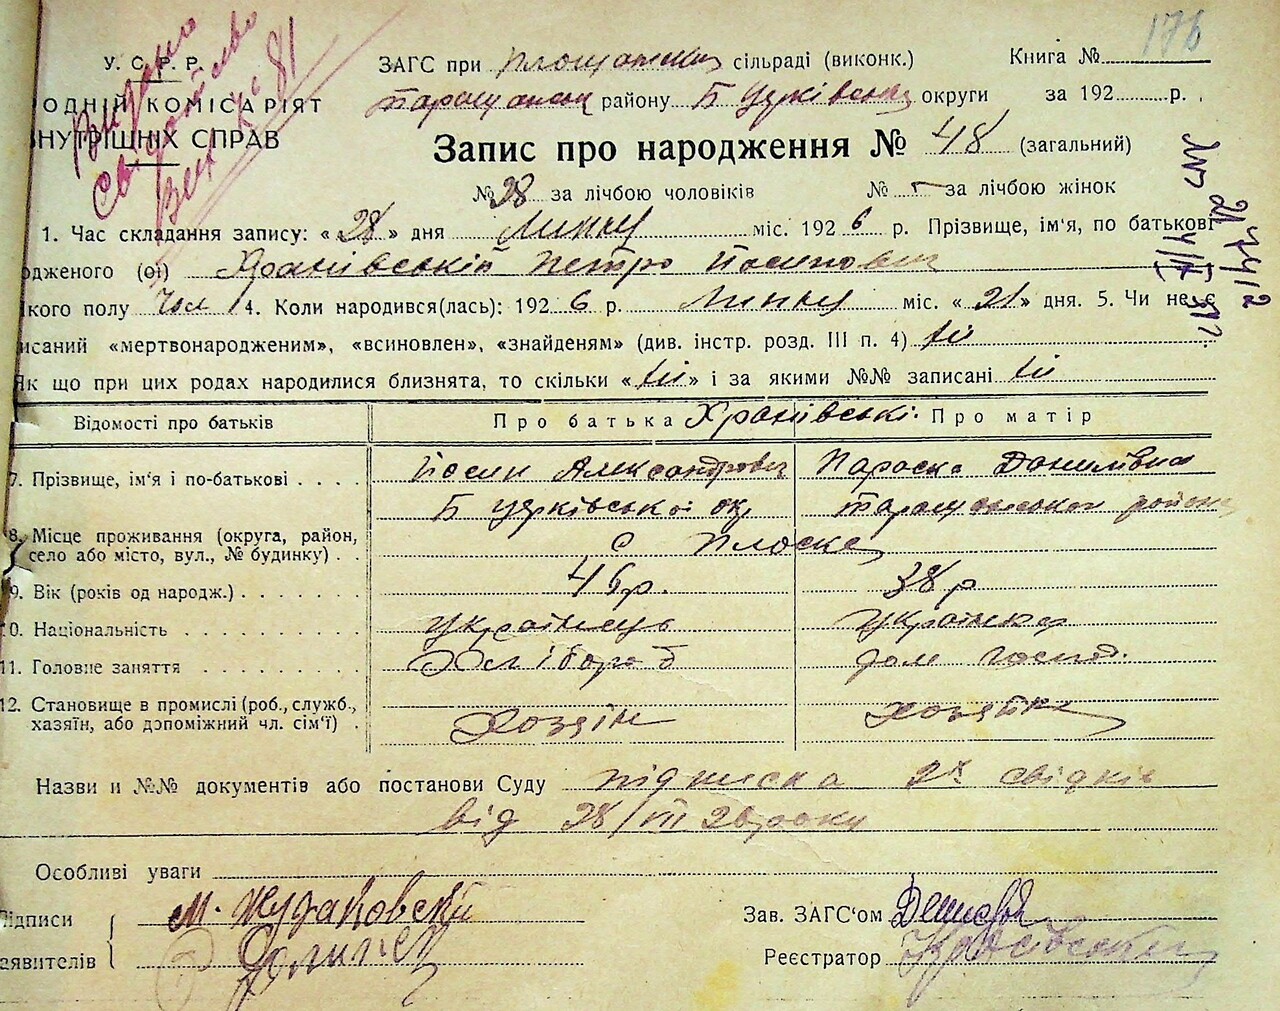 176
Видано
свідоцтво
81
У. С. Р. Р.
ОДНІЙ КОМІСАРІЯТ
НУТРІШНІХ СПРАВ
ЗАГС при сільраді (виконк.) Книга №
району Б Церківської округи за 192 р.
Запис про народження № 48 (загальний)
№ 28 за лічбою чоловіків № - за лічбою жінок
1. Час складання запису: « 28 » дня Липня міс. 1926 р. Прізвище, ім'я, по батькові
одженого (ої) Храпівський Петро Йосипович
кого полу Чол 4. Коли народився(лась): 1926 р. Липня міс. « 21 » дня. 5. Чи не є
исаний «мертвонародженим», «всиновлен», «знайденям» (див. інстр. розд. III п. 4) Ні
Як що при цих родах народилися близнята, то скільки « Ні » і за якими №№ записані Ні
Відомості про батьків Про батька Храпівські Про матір
7. Прізвище, ім'я і по-батькові Йосип Александрович Параска Данилівна
Б Церківської окр Таращанського району
8. Місце проживання (округа, район,
село або місто, вул., № будинку) с Плоске
9. Вік (років од народж.) 46 р. 38 р
10. Національність українець українка
11. Головне заняття Хлібороб дом господ.
12. Становище в промислі (роб., служб.,
хазяїн, або допоміжний чл. сім'ї) Хозяін хозяйка
Назви и №№ документів або постанови Суду підписка 2х свідків
від 28/VII 26 року
Особливі уваги
Підписи М. Жудаковский Зав. ЗАГС'ом
аявителів Реєстратор